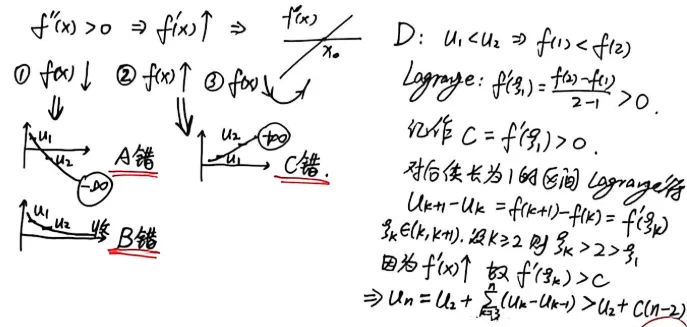 f''(x)>0 ⇒ f'(x)↑ ⇒ f'(x)
x₀
① f(x)↓ ② f(x)↑ ③ f(x)
u₁
u₂
-∞
A错
u₂
u₁
+∞
C错.
u₁
u₂
B错
D: u₁<u₂ ⇒ f(1)<f(2)
Lagrange: f'(ξ₁)=\frac{f(2)-f(1)}{2-1}>0.
记作 C=f'(ξ₁)>0.
对后续长为1的区间Lagrange得
u_{k+1}-u_k=f(k+1)-f(k)=f'(ξ_k)
ξ_k∈(k,k+1). 设k≥2则ξ_k>2>ξ₁
因为f'(x)↑ 故f'(ξ_k)>C
⇒ u_n=u₂+\sum_{k=3}^{n}(u_k-u_{k-1})>u₂+C(n-2)